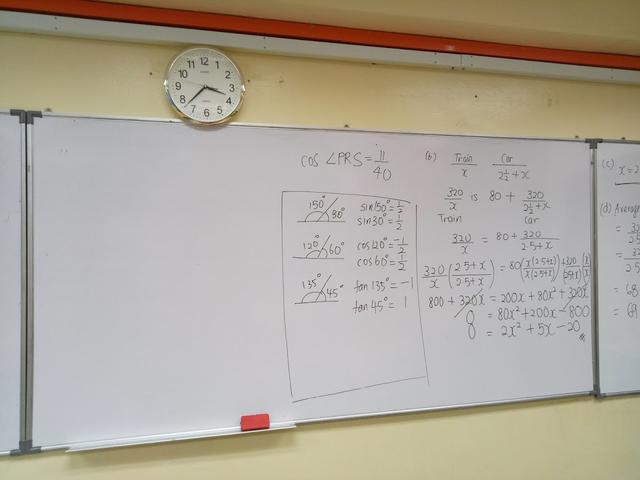 12
1
2
3
4
5
6
7
8
9
10
11
cos ∠PRS = 11/40
150° 30°
sin150° = 1/2
sin30° = 1/2
120° 60°
cos120° = -1/2
cos60° = 1/2
135° 45°
tan 135° = -1
tan 45° = 1
(b) Train/x Car/2½+x
320/x is 80 + 320/2½+x
Train Car
320/x = 80 + 320/2.5+x
320/x (2.5+x/2.5+x) = 80 (x(2.5+x)/x(2.5+x)) + 320/2.5+x (x/x)
800 + 320x = 200x + 80x² + 320x
= 80x² + 200x - 800
8 = 2x² + 5x - 20
(c)
x = 2
(d) Average
= 68
= 69